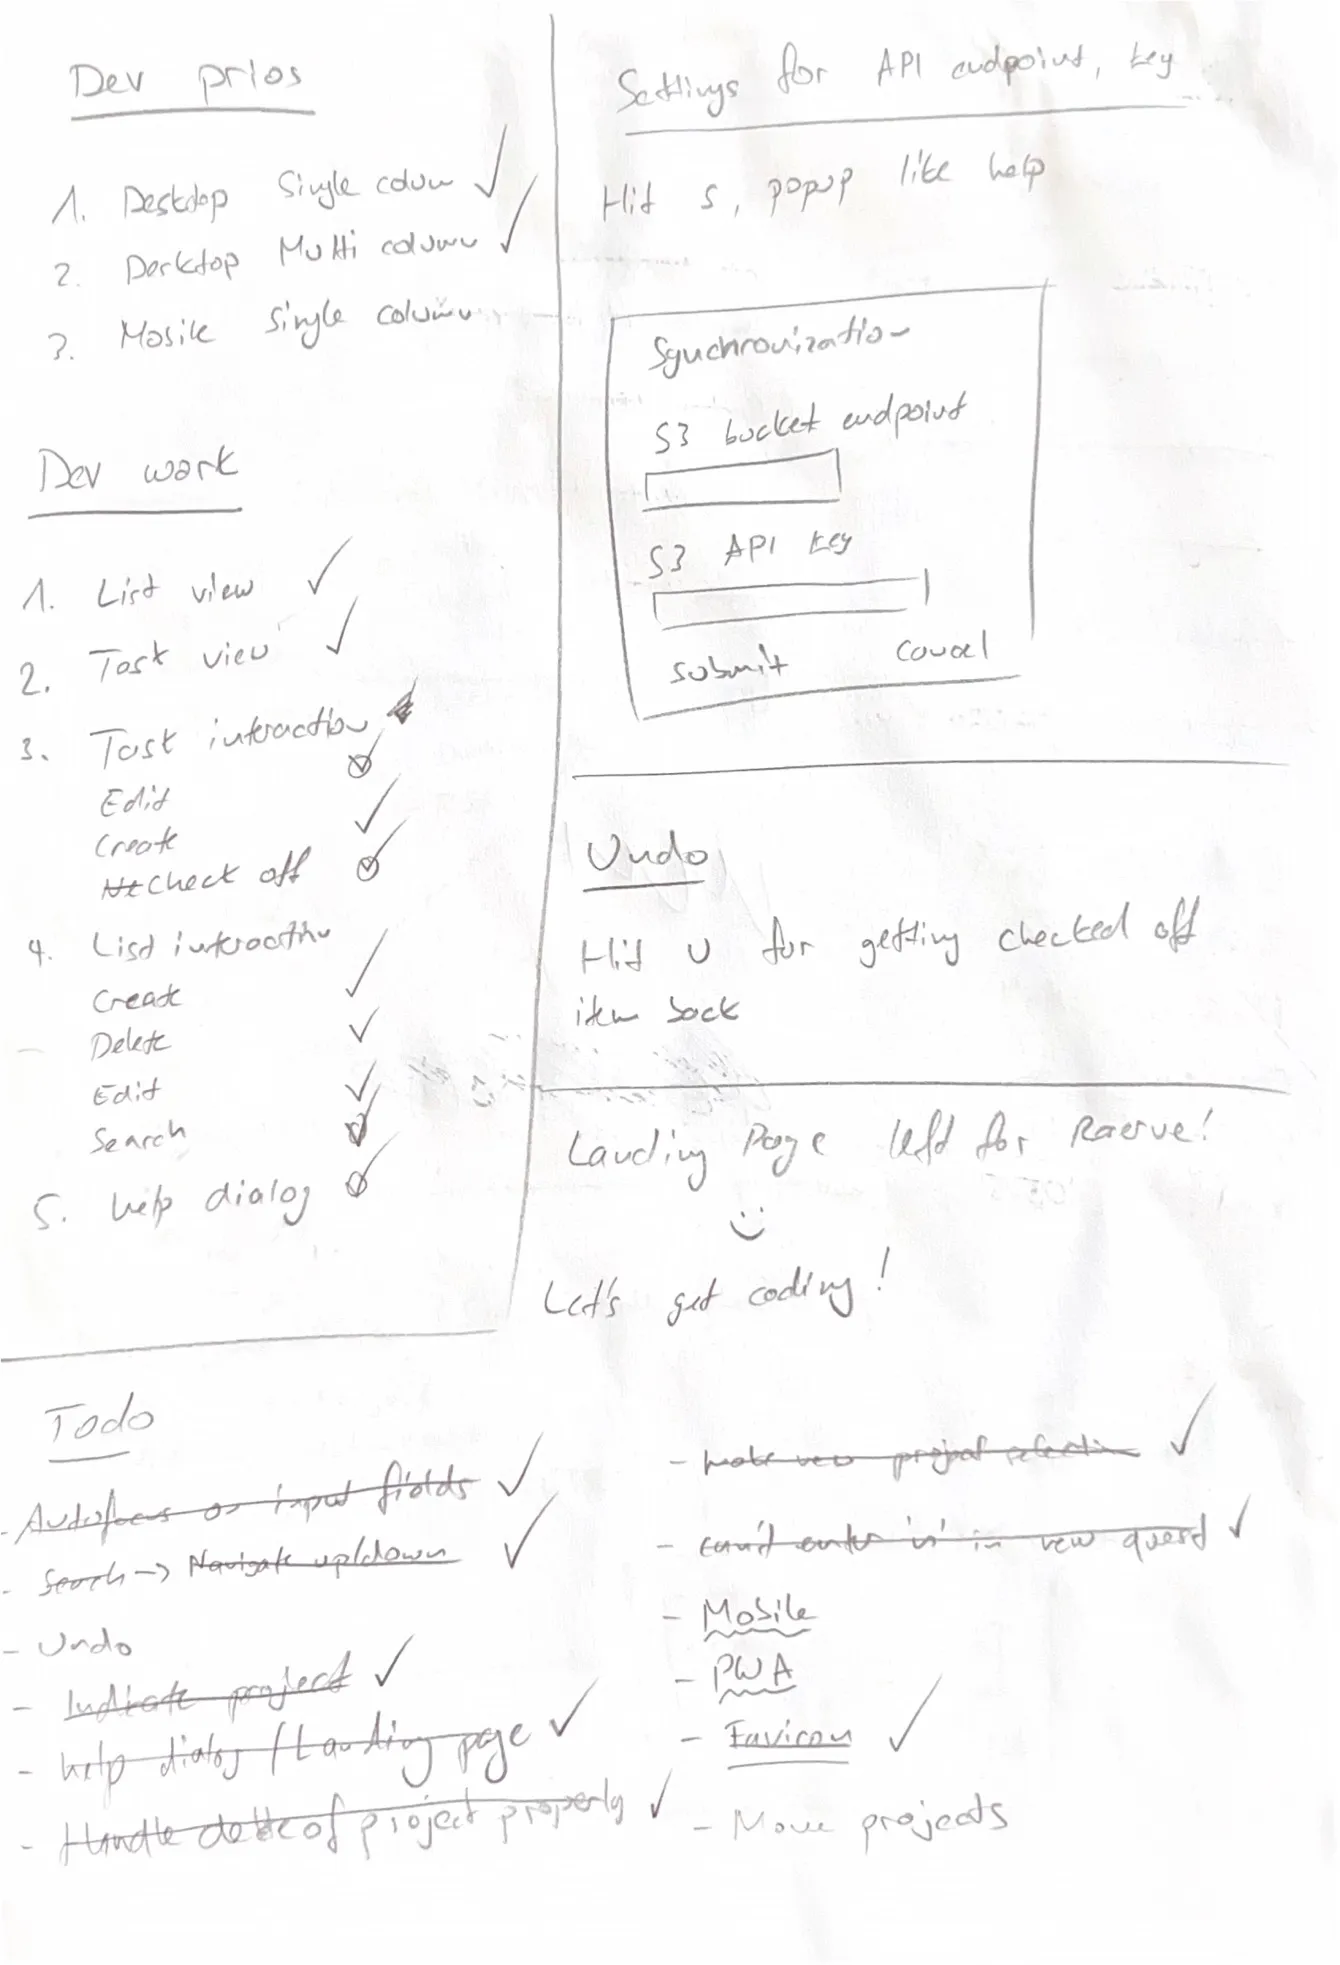 Dev prios
1. Desktop Single column ✓
2. Desktop Multi column ✓
3. Mobile Single column
Dev work
1. List view ✓
2. Task view ✓
3. Task interaction
Edit
Create ✓
Check off
4. List interaction
Create ✓
Delete ✓
Edit ✓
Search
5. help dialog
Settings for API endpoint, key
Hit s, popup like help
Synchronization
S3 bucket endpoint
S3 API key
Submit Cancel
Undo
Hit U for getting checked off
item back
Landing Page left for
Let's get coding!
Todo
- Autofocus on input fields ✓
- Search -> Navigate up/down ✓
- Undo
- Indicate project ✓
- help dialog / Landing page ✓
- Handle delete of project properly ✓
- make new project selection ✓
- can't enter 'n' in new quest ✓
- Mobile
- PWA
- Favicon ✓
- Move projects